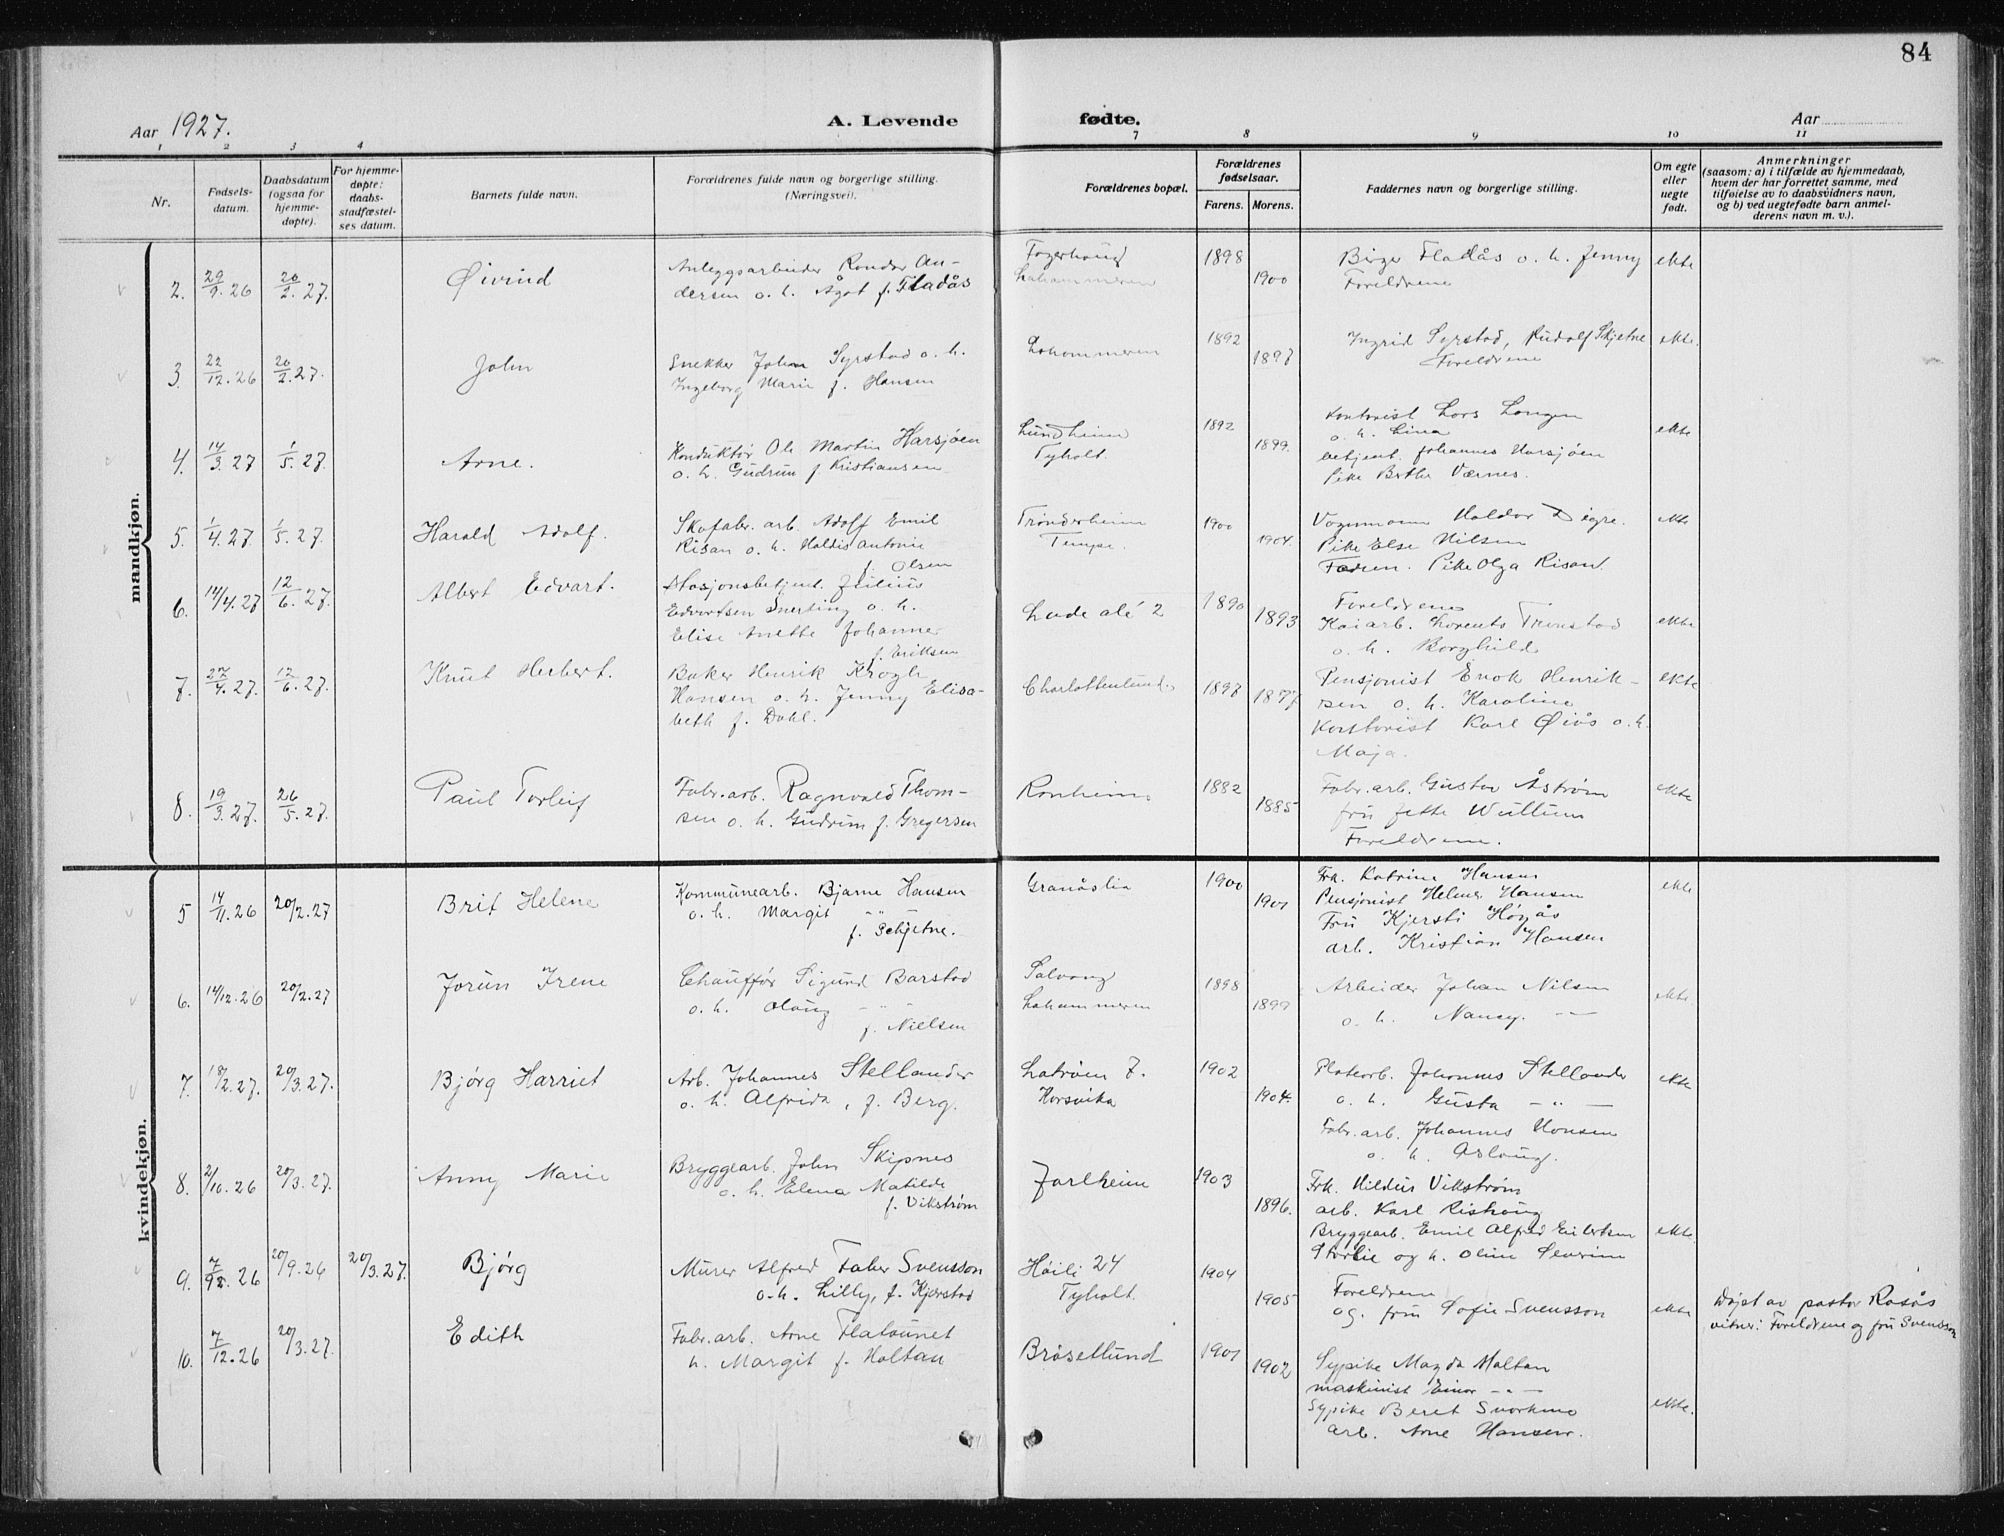 84
Aar 1927.
A. Levende fødte.
Aar
1 2 3 4 7 8 9 10 11
Nr.
Fødsels-
datum.
Daabsdatum
(ogsaa for
hjemme-
døpte).
For hjemme-
døpte:
daabs-
stadfæstel-
ses datum.
Barnets fulde navn.
Forældrenes fulde navn og borgerlige stilling.
(Næringsvei).
Forældrenes bopæl.
Forældrenes
fødselsaar.
Farens. Morens.
Faddernes navn og borgerlige stilling.
Om egte
eller
uegte
født.
Anmerkninger
(saasom: a) i tilfælde av hjemmedaab,
hvem der har forrettet samme, med
tilføielse av to daabsvidners navn,
og b) ved uegtefødte barn anmel-
derens navn m. v.).
mandkjøn.
2. 29/9.26 20/2.27. Øivind
Anleggsarbeider Rondor An-
dersen o. h. Ågot f. Fladås
Fagerhaug
Lahammeren
1898 1900
Birger Fladås o. h. Jenny
Foreldrene
ekte
3. 22/12.26 20/2.27. John
Snekker Johan Syrstad o. h.
Ingeborg Marie f. Hansen
Lahammeren
1892 1897
Ingrid Syrstad, Rudolf Skjetne
Foreldrene
ekte.
4. 14/3.27 1/5.27. Arne.
Konduktør Ole Martin Harsjøen
o. h. Gudrun f Kristiansen
Lundheim
Tyholt.
1892 1899.
Kontorist Lars Longen
o. h. Lina
betjent. Johannes Harsjøen
Pike Berthe Værnes.
ekte
5. 1/4.27 1/5.27. Harald Adolf.
Skofabr. arb. Adolf Emil
Risan o. h. Haldis Antonie
f. Olsen
Trønderheim
Tempe.
1900 1904.
Vognmann Haldor Digre.
Pike Else Nilsen
Faderen. Pike Olga Risan.
ekte
6. 14/4.27 12/6.27. Albert Edvart.
Stasjonsbetjent. Julius
Edvartsen Snerting o. h.
Elise Anette Johanne
f. Eriksen
Lade alé 2
1890 1893
Foreldrene
Kaiarb. Lorents Trønstad
o. h. Borghild
ekte
7. 27/4.27. 12/6.27. Knut Herbert.
Baker Henrik Krogh
Hansen o. h. Jenny Elisa-
beth f. Dahl.
Charlottenlund.
1897 1897
Pensjonist Enok Henrik-
sen o. h. Karoline
Kontorist Karl Øiås o. h.
Maja.
ekte
8. 19/3.27. 26/5.27. Paul Torleif
Fabr. arb. Ragnvald Thom-
sen o. h. Gudrun f. Gregersen
Ronheim
1882 1885
Fabr. arb. Gustav Åstrøm
fru Jette Wullum
Foreldrene.
ekte
kvindekjøn.
5 14/11.26 20/2.27 Brit Helene
Kommunearb. Bjarne Hansen
o. h. Margit - " -
f. Schjetne.
Granåslia
1900 1901
Frk. Katrine Hansen
Pensjonist Helmer Hansen
Fru Kjersti Høgås
arb. Kristian Hansen
ekte
6. 14/12.26 20/2.27 Jorun Irene
Chauffør Sigurd Barstad
o. h. Olaug - " -
f. Nielsen
Solvang
Lahammeren
1898 1899
Arbeider Johan Nilsen
o. h. Nancy. - " -
ekte.
7. 18/2.27. 20/3.27. Bjørg Harriet
Arb. Johannes Stellander
o. h. Alfrida, f. Berg.
Latrøen 7.
Korsvika
1902 1904.
Platearb. Johannes Stellander
o. h. Gusta - " -
Fabr. arb. Johannes Hansen
o. h. Aslaug.
ekte
8. 2/10.26 20/3.27. Anny Marie
Bryggearb. John Skipnes
o. h. Elena Matilde
f. Vikstrøm
Jarlheim
1903 1896.
Frk. Hildur Vikstrøm
arb. Karl Risthaug
Bryggearb. Emil Alfred Eilertsen
Storlie og h. Oline Severine
ekte.
9. 26 20/9.26 20/3.27. Bjørg
Murer Alfred Faber Svensson
o. h. Lilly, f. Kjerstad
Høili 24
Tyholt.
1904 1905
Foreldrene
og. fru Sofie Svensson
ekte
Døpt av pastor Rosås
vitner: Foreldrene og fru Svensson
10. 7/12.26 20/3.27. Edith
Fabr. arb. Arne Flataunet
h. Margit f. Holtan
Bråsetlund
1901 1902
Sypike Magda Holtan
maskinist Einar - " -
Sypike Beret Snorkmo
arb. Arne Hansen.
ekte.